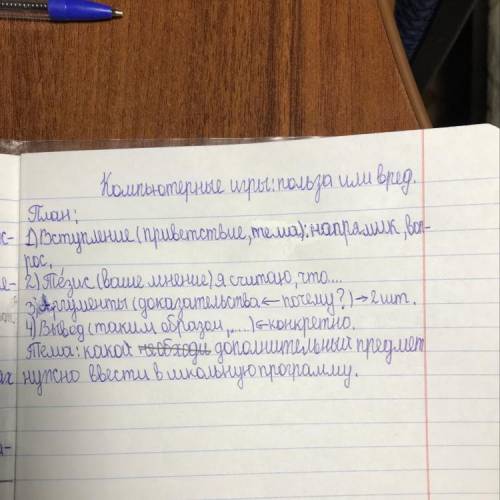 Компьютерные игры: польза или вред.
План:
1) Вступление (приветствие, тема): напрямик, воп-
рос.
2) Тéзис (ваше мнение) я считаю, что....
3) Аргументы (доказательства ← почему?) → 2 шт.
4) Вывод (таким образом,....) ← конкретно.
Тема: какой необходи дополнительный предмет
нужно ввести в школьную программу.